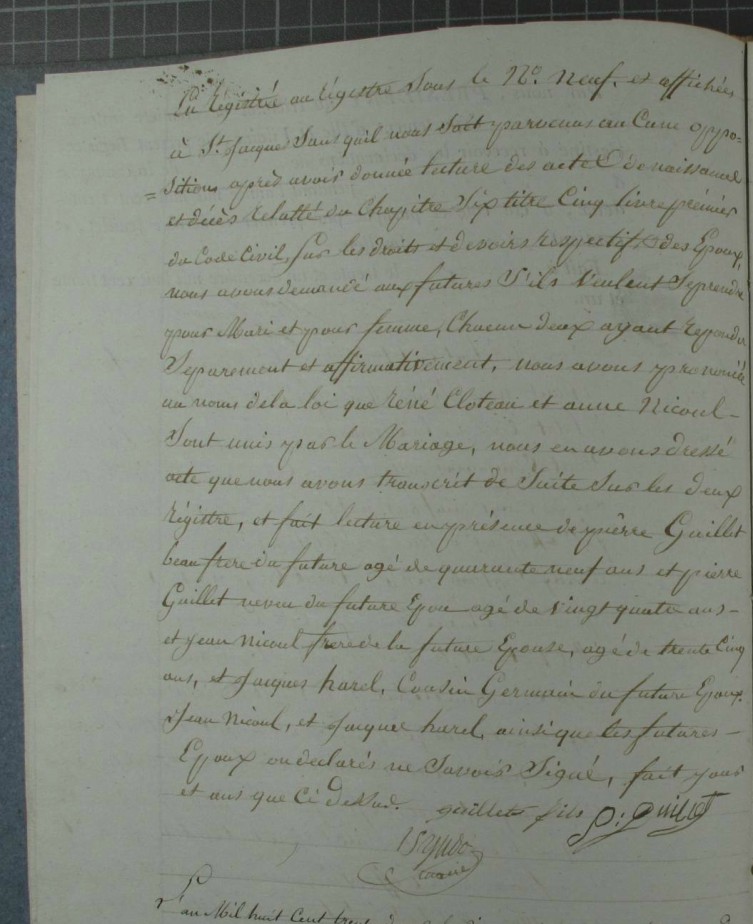 Régistrée au régistre Sous le N.º neuf. et affichées
à St. Jacques Sans quil nous Soit parvenus au Cune oppo=
= sitions après avois donnée lecture des acte De naissance
et décès Relatté du Chapitre Six titre Cinq livre prémier
du Code Civil, Sur les droits et devoirs respectifs des Epoux,
nous avons demandé aux futures S'ils veulent Se prendre
pour Mari et pour femme, Chacun deux ayant Repondu
Separement et affirmativement, nous avons prononcé
au noms de la loi que Réné Cloteau et anne Nicoul -
Sont unis par le Mariage, nous en avons dressé
acte que nous avons transcrit de Suite Sur les deux
Régistre, et fait lecture en présence de pierre Guillet
beaufrere du future agé de quarante neuf ans et pierre
Guillet neveu du future Epou agé de vingt quatre ans -
et Jean Nicoul frere de la future Epouse, agé de trente Cinq
ans, et Jacques harel, Cousin Germain du future Epoux.
Jean Nicoul, et Jacque harel, ainsi que les futures -
Epoux on declarés ne Savois Signé, fait jour
et ans que Ci dessus. guillet fils P. Guillet
L'an Mil huit Cent